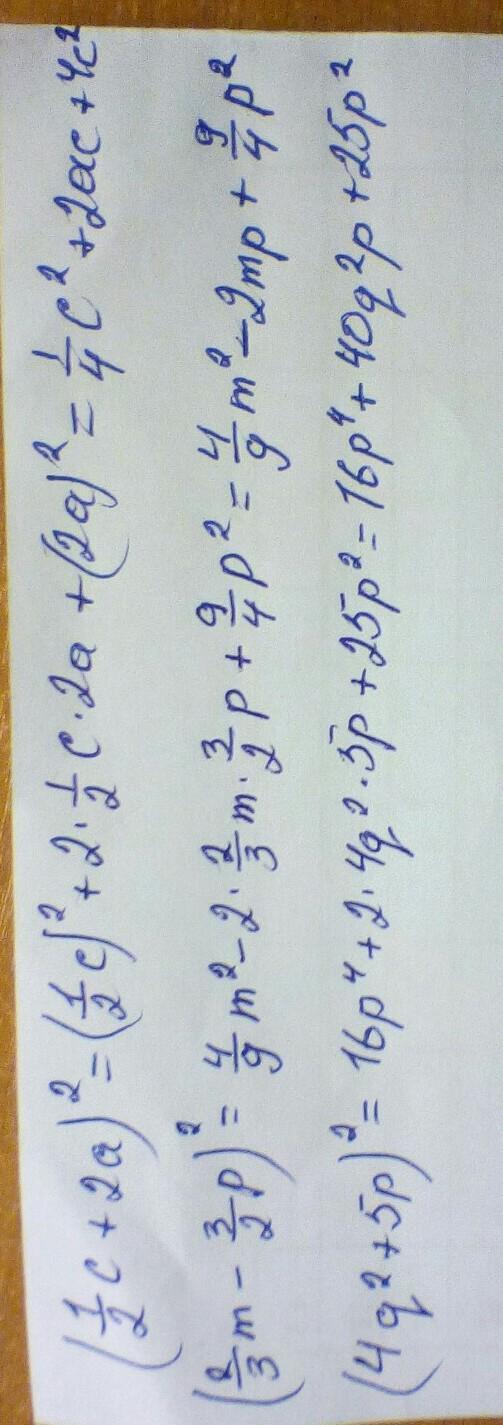 (1/2 c + 2a)² = (1/2 c)² + 2 · 1/2 c · 2a + (2a)² = 1/4 c² + 2ac + 4c²
(2/3 m − 3/2 p)² = 4/9 m² − 2 · 2/3 m · 3/2 p + 9/4 p² = 4/9 m² − 2mp + 9/4 p²
(4q² + 5p)² = 16p⁴ + 2 · 4q² · 5p + 25p² = 16p⁴ + 40q²p + 25p²